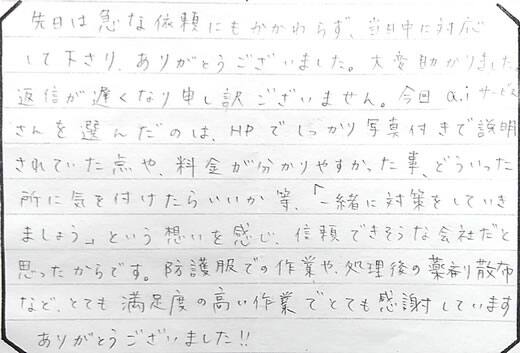 先日は急な依頼にもかかわらず、当日中に対応
して下さり、ありがとうございました。大変助かりました。
返信が遅くなり申し訳ございません。今回 a.i サービス
さんを選んだのは、HPでしっかり写真付きで説明
されていた点や、料金が分かりやすかった事、どういった
所に気を付けたらいいか等、「一緒に対策をしていき
ましょう」という想いを感じ、信頼できそうな会社だと
思ったからです。防護服での作業や、処理後の薬剤散布
など、とても満足度の高い作業でとても感謝しています
ありがとうございました!!